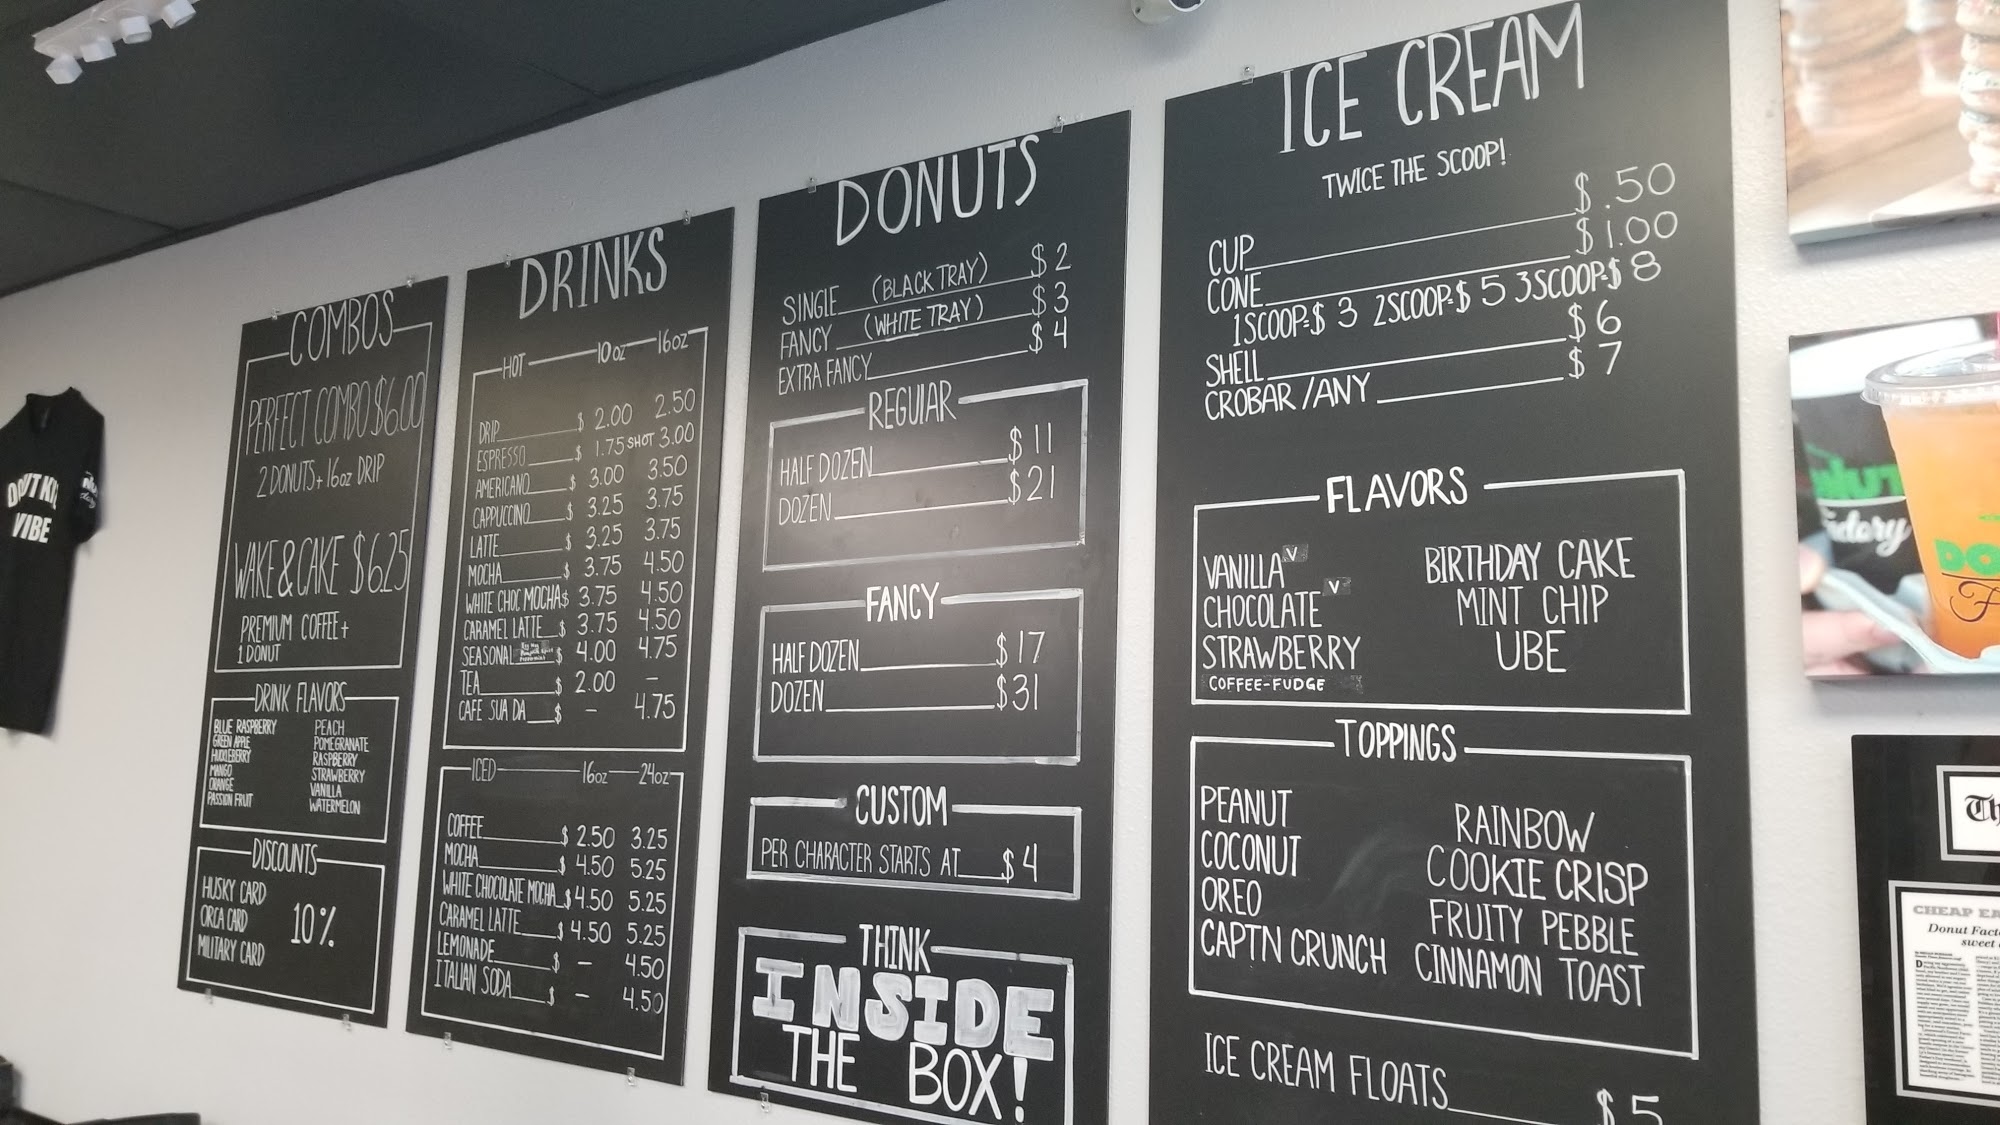 COMBOS
PERFECT COMBO $6.00
2 DONUTS + 16oz DRIP
WAKE & CAKE $6.25
PREMIUM COFFEE +
1 DONUT
DRINK FLAVORS
BLUE RASPBERRY PEACH
GREEN APPLE POMEGRANATE
HUCKLEBERRY RASPBERRY
MANGO STRAWBERRY
ORANGE VANILLA
PASSION FRUIT WATERMELON
DISCOUNTS
HUSKY CARD
ORCA CARD 10%
MILITARY CARD
DRINKS
HOT 10oz 16oz
DRIP $ 2.00 2.50
ESPRESSO $ 1.75 SHOT 3.00
AMERICANO $ 3.00 3.50
CAPPUCCINO $ 3.25 3.75
LATTE $ 3.25 3.75
MOCHA $ 3.75 4.50
WHITE CHOC MOCHA $ 3.75 4.50
CARAMEL LATTE $ 3.75 4.50
SEASONAL $ 4.00 4.75
TEA $ 2.00 -
CAFE SUA DA $ - 4.75
ICED 16oz 24oz
COFFEE $ 2.50 3.25
MOCHA $ 4.50 5.25
WHITE CHOCOLATE MOCHA $ 4.50 5.25
CARAMEL LATTE $ 4.50 5.25
LEMONADE $ - 4.50
ITALIAN SODA $ - 4.50
DONUTS
SINGLE (BLACK TRAY) $ 2
FANCY (WHITE TRAY) $ 3
EXTRA FANCY $ 4
REGULAR
HALF DOZEN $ 11
DOZEN $ 21
FANCY
HALF DOZEN $ 17
DOZEN $ 31
CUSTOM
PER CHARACTER STARTS AT $ 4
THINK
INSIDE
THE BOX!
ICE CREAM
TWICE THE SCOOP!
CUP $ .50
CONE $ 1.00
1 SCOOP=$ 3 2 SCOOP=$ 5 3 SCOOP=$ 8
SHELL $ 6
CROBAR /ANY $ 7
FLAVORS
VANILLA V BIRTHDAY CAKE
CHOCOLATE V MINT CHIP
STRAWBERRY UBE
COFFEE-FUDGE
TOPPINGS
PEANUT RAINBOW
COCONUT COOKIE CRISP
OREO FRUITY PEBBLE
CAPTN CRUNCH CINNAMON TOAST
ICE CREAM FLOATS $ 5
VIBE
CHEAP EA
Donut Facto
sweet